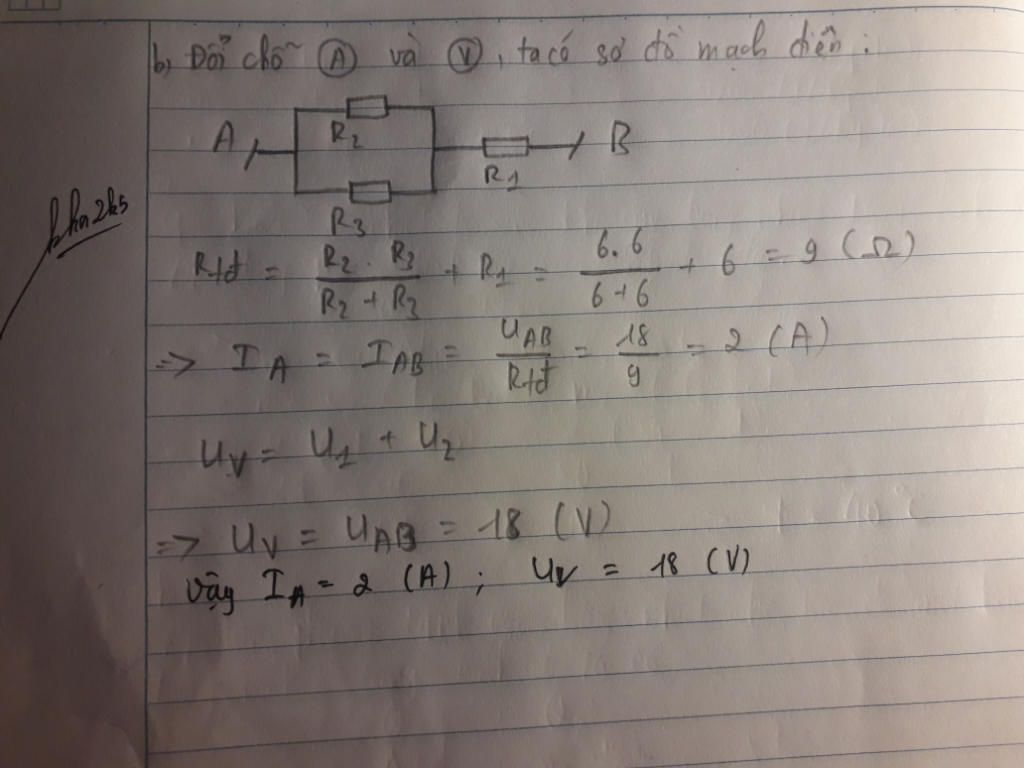 b, Đổi chỗ (A) và (V), ta có sơ đồ mạch điện :
A R2 B
R1
R3
khn2k5
Rtđ = R2 . R3 / R2 + R3 + R1 = 6.6 / 6+6 + 6 = 9 (Ω)
=> IA = IAB = UAB / Rtđ = 18 / 9 = 2 (A)
UV = U1 + U2
=> UV = UAB = 18 (V)
Vậy IA = 2 (A) ; UV = 18 (V)